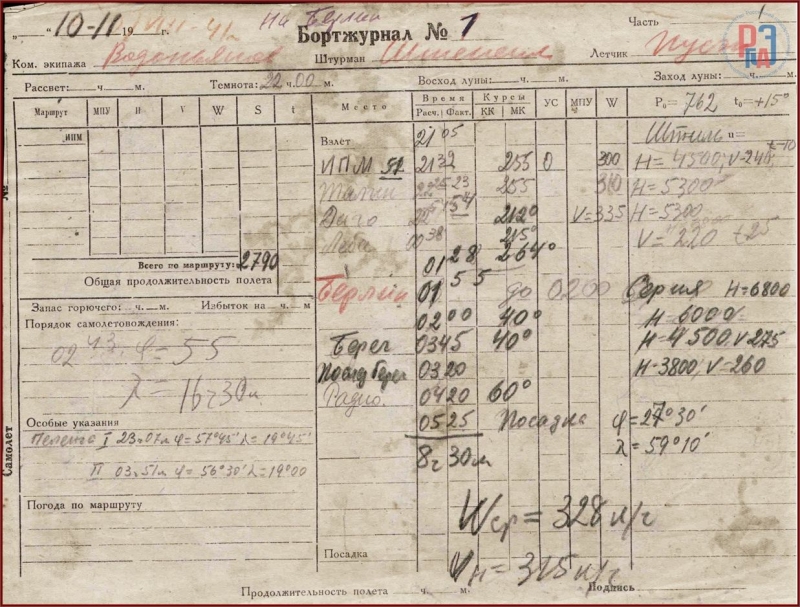 На Берлин
Часть 1
„ “ 10-11 19 г. Бортжурнал № 1
РЭ
ПА
Ком. экипажа Водопьянов Штурман Штепенко Летчик Пусэп
Рассвет: ч. м. Темнота: 22 00 м. Восход луны: ч. м. Заход луны: ч. м.
Маршрут МПУ П V W S t Место Время Курсы УС МПУ W P₀= 762 t₀= +15°
Расч. Факт. КК МК
ИПМ
Взлёт 21 05 Штиль
ИПМ 21 32 255 0 300 H=4500, V=240
255 310 H=5300
Даго 212° V=335 H=5300
00 38 215° V=220 -25
Всего по маршруту: 2790 01 28 264°
Общая продолжительность полета
Берлин 01 55 до 02 00 Серия H=6800
Запас горючего: ч. м. Избыток на ч. м.
02 00 40° H=6000
Порядок самолетовождения:
Берег 03 45 40° H=4500, V=275
02 43. φ=55
03 20 H=3800, V=260
λ=16 ч 30 м
Радио. 04 20 60°
Особые указания 05 25 Посадка φ=27°30′
Пеленга I 23ч07м φ=57°45′ λ=19°45′ λ=59°10′
II 03ч51м φ=56°30′ λ=19°00
8ч 30м
Погода по маршруту
Wср = 328 к/ч
Посадка Vн = 315 к/ч
Продолжительность полета ч. м. Подпись
Самолет
№